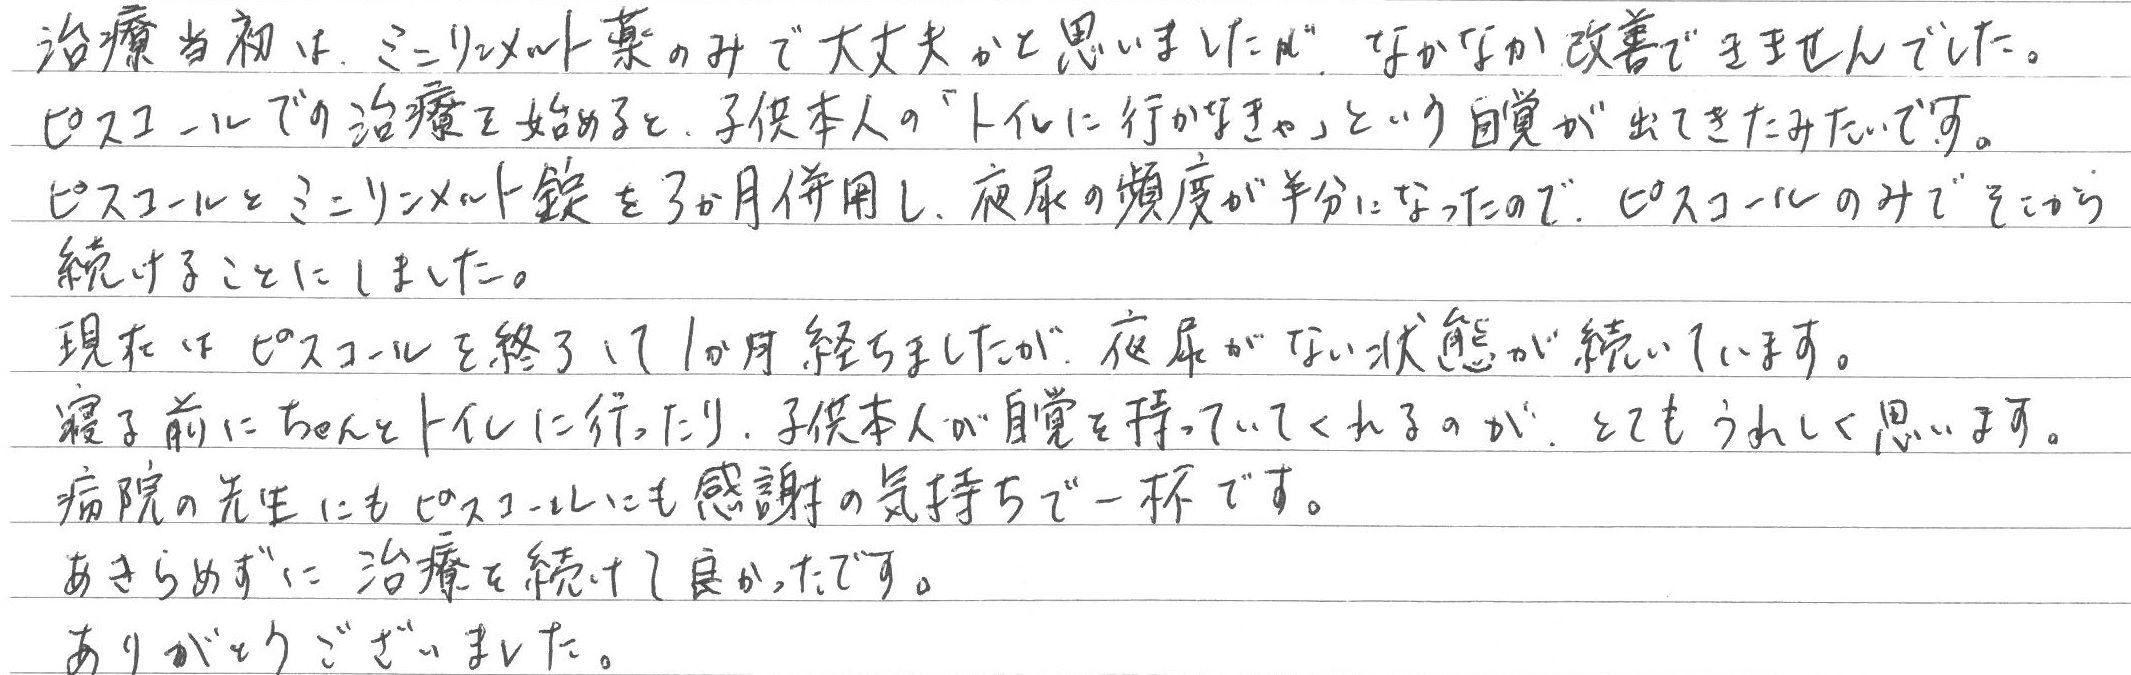 治療当初は、ミニリンメルト薬のみで大丈夫かと思いましたが、なかなか改善できませんでした。
ピスコールでの治療を始めると、子供本人の「トイレに行かなきゃ」という自覚が出てきたみたいです。
ピスコールとミニリンメルト錠を3か月併用し、夜尿の頻度が半分になったので、ピスコールのみでそこから
続けることにしました。
現在はピスコールを終了して1か月経ちましたが、夜尿がない状態が続いています。
寝る前にちゃんとトイレに行ったり、子供本人が自覚を持っていてくれるのが、とてもうれしく思います。
病院の先生にもピスコールにも感謝の気持ちで一杯です。
あきらめずに治療を続けて良かったです。
ありがとうございました。